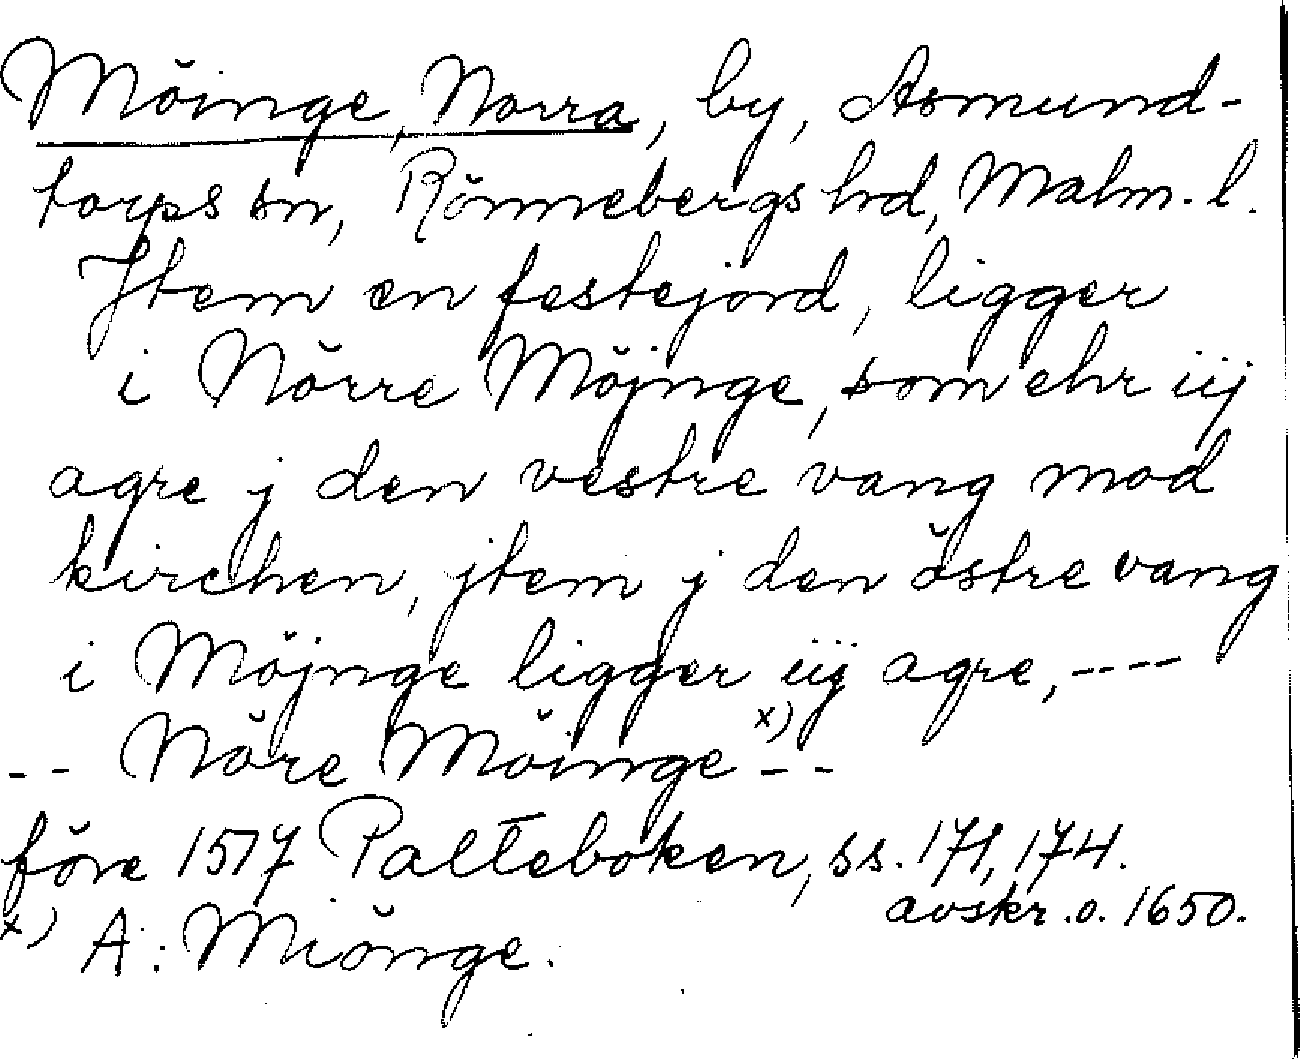 Möinge, Norra, by, Asmund-
torps sn, Rönnebergs hd, Malm. l.
Jtem en festejord, ligger
i Nörre Möjnge, som ehr iij
agre j den vestre vang mod
kirchen, jtem j den östre vang
i Möjnge ligger iij agre, ----
-- Nöre Möinge x) --
före 1517 Palteboken, ss. 171, 174.
avskr. o. 1650.
x) A: Miönge.